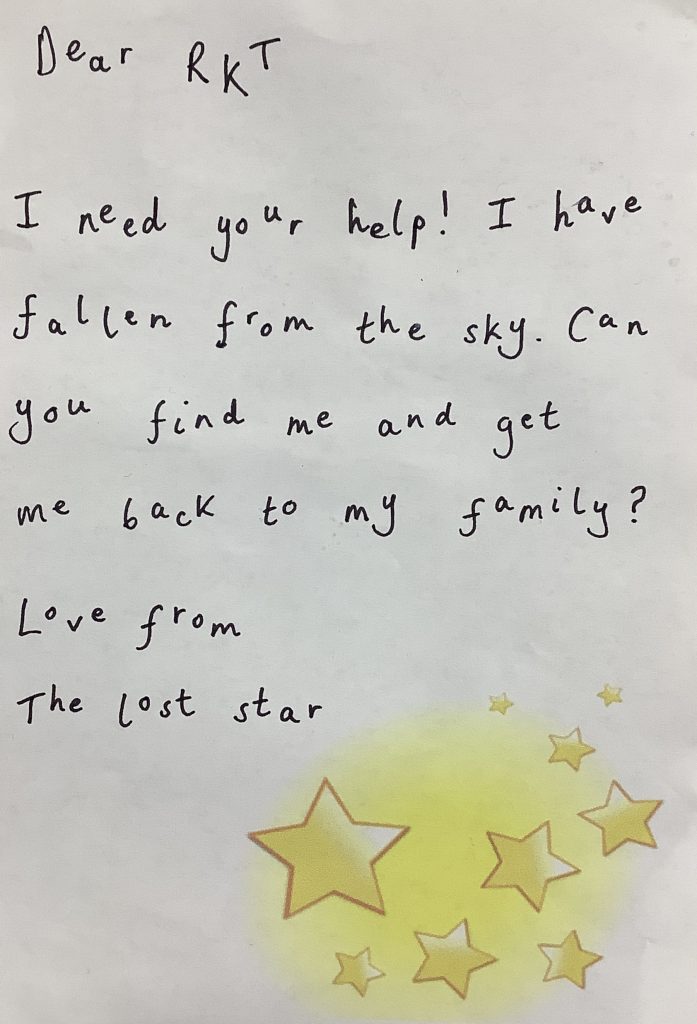 Dear RKT
I need your help! I have
fallen from the sky. Can
you find me and get
me back to my family?
Love from
The lost star